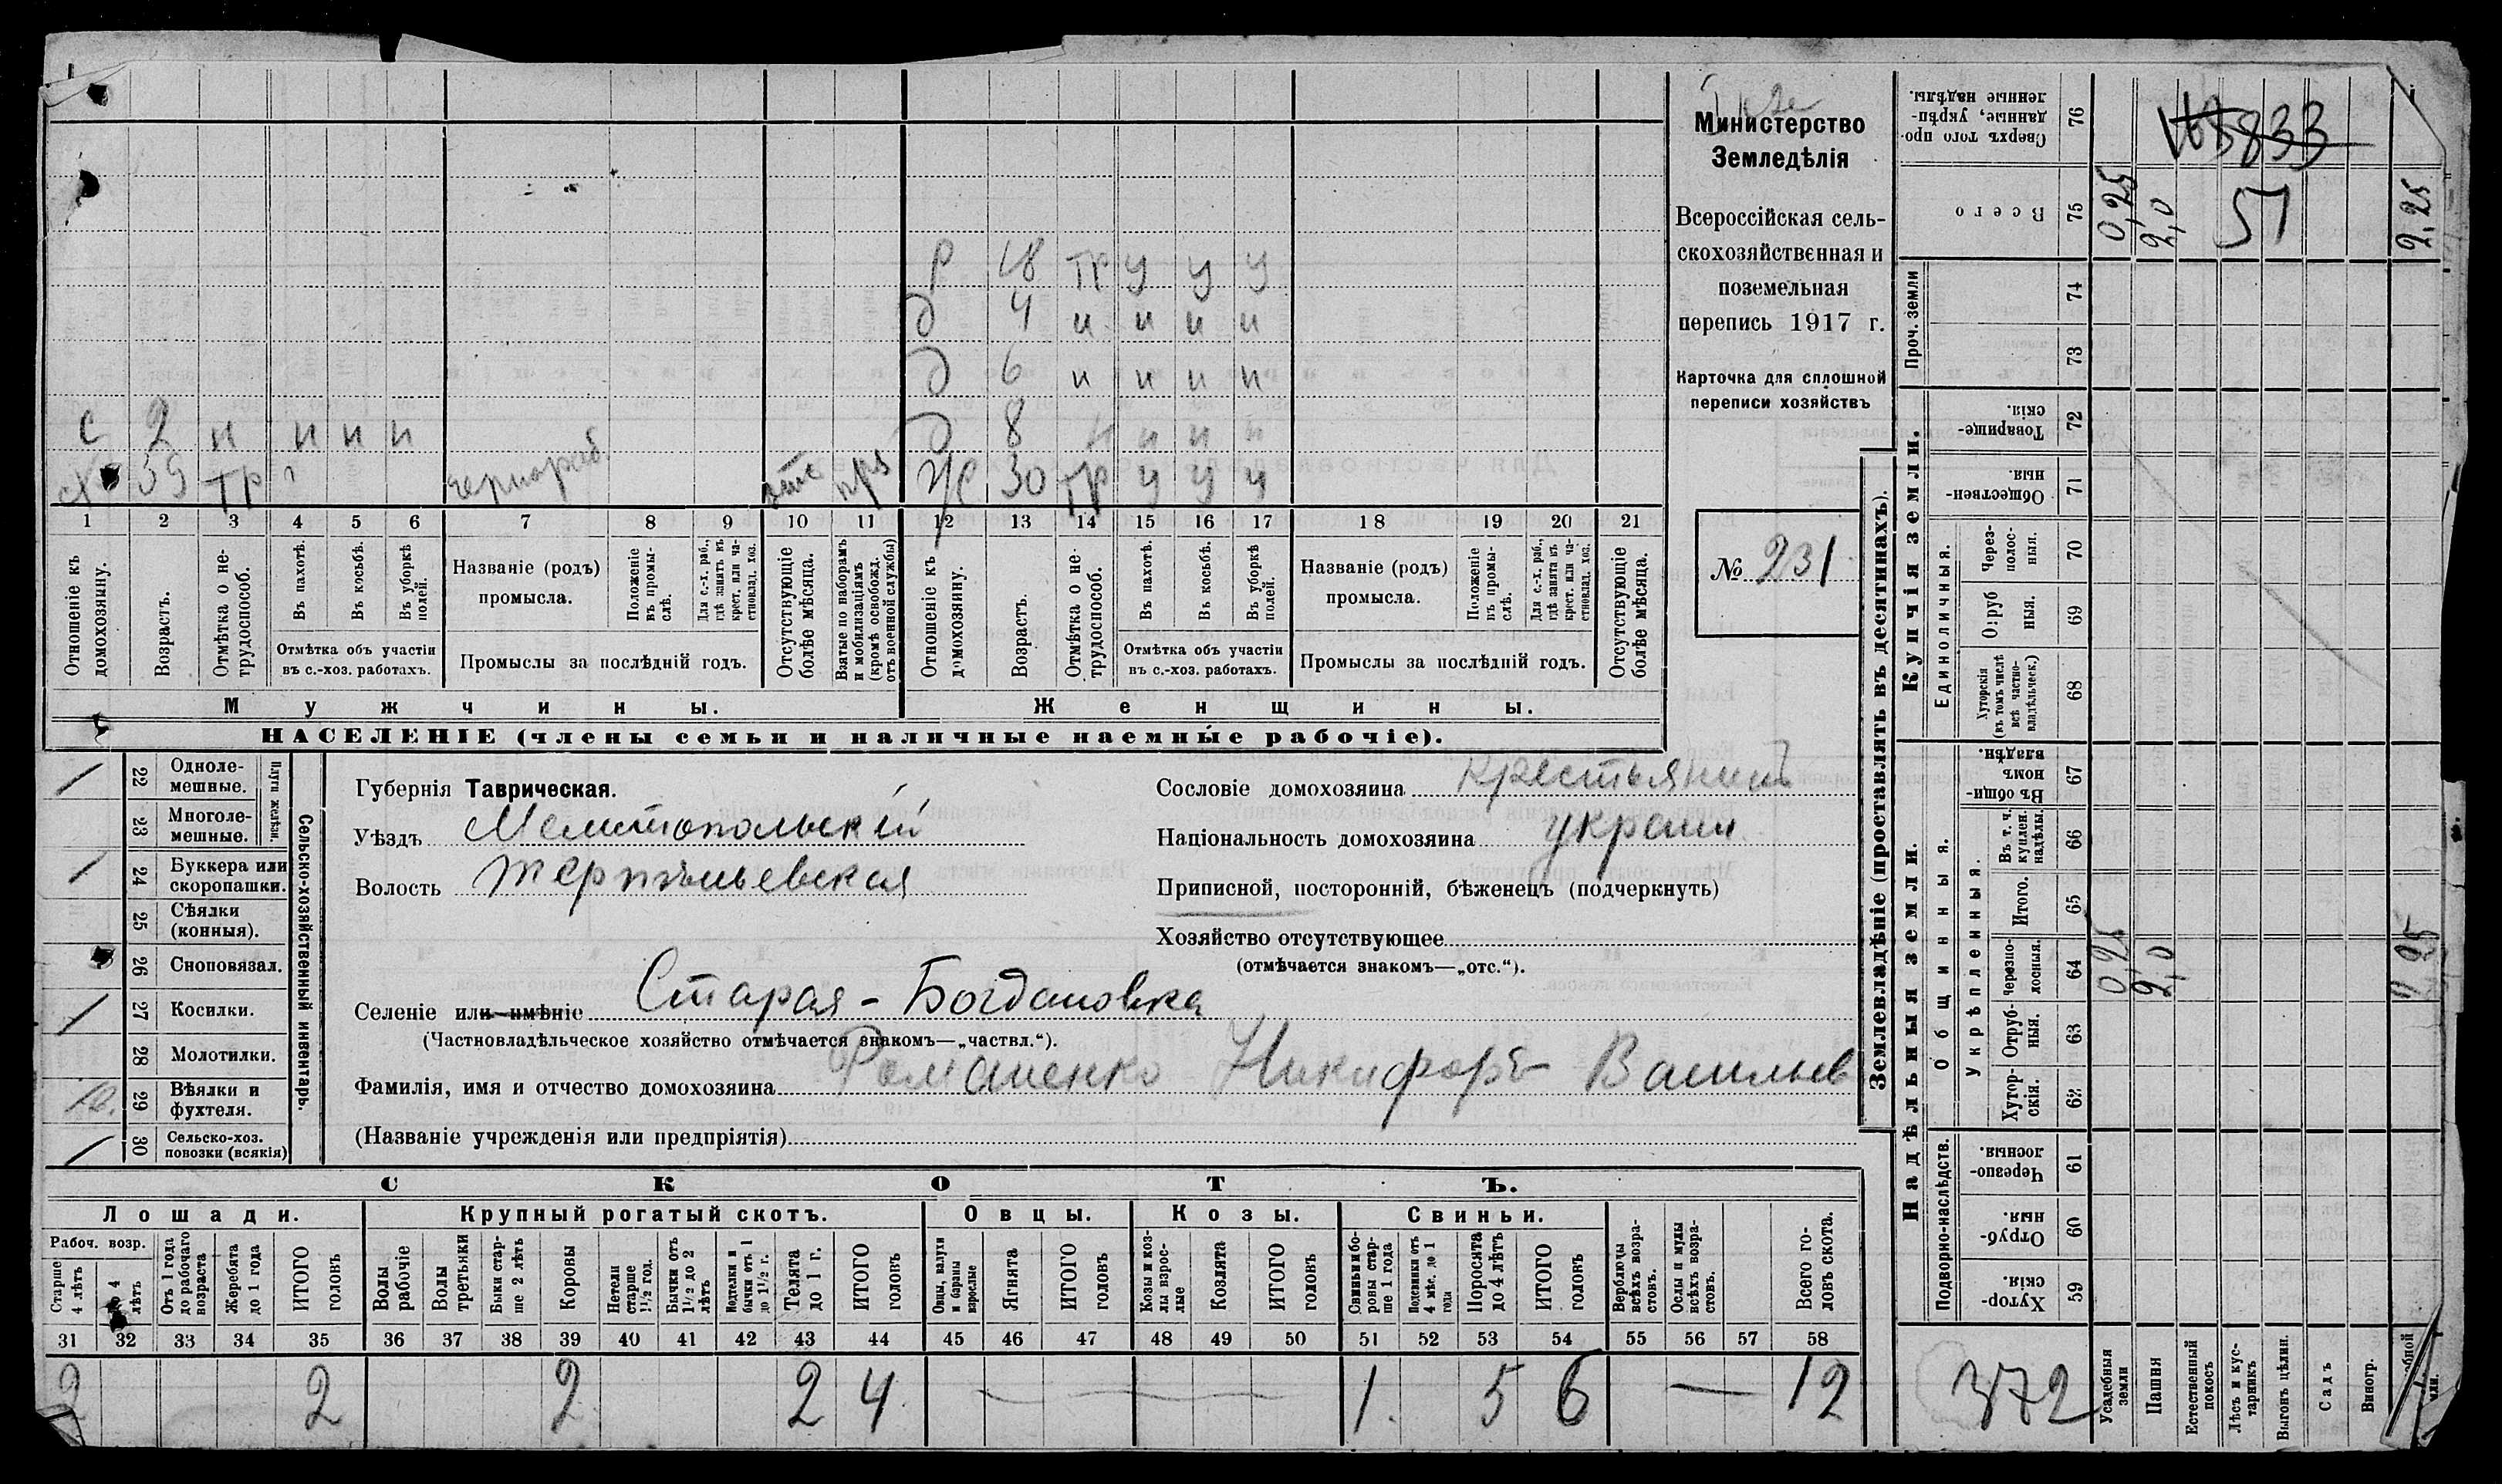 Министерство
Земледѣлія
Всероссійская сель-
скохозяйственная и
поземельная
перепись 1917 г.
Карточка для сплошной
переписи хозяйствъ
№ 231
р 18 тр у у у
д 4 н н н н
д 6 н н н н
с 2 н н н н
д 8 н н н н
39 тр чернораб.
ж 30 тр у у у
1 2 3 4 5 6 7 8 9 10 11 12 13 14 15 16 17 18 19 20 21
Отношеніе къ домохозяину.
Возрастъ.
Отмѣтка о не-трудоспособ.
Въ пахотѣ.
Въ косьбѣ.
Въ уборкѣ полей.
Отмѣтка объ участіи
въ с.-хоз. работахъ.
Названіе (родъ)
промысла.
Положеніе въ промы-слѣ.
Для с.-х. раб., гдѣ занятъ въ крест. или ча-стновлад. хоз.
Промыслы за послѣдній годъ.
Отсутствующіе болѣе мѣсяца.
Взятые по наборамъ и мобилизаціямъ (кромѣ освобожд. отъ военной службы)
Отношеніе къ домохозяину.
Возрастъ.
Отмѣтка о не-трудоспособ.
Въ пахотѣ.
Въ косьбѣ.
Въ уборкѣ полей.
Отмѣтка объ участіи
въ с.-хоз. работахъ.
Названіе (родъ)
промысла.
Положеніе въ промы-слѣ.
Для с.-х. раб., гдѣ занята въ крест. или ча-стновлад. хоз.
Промыслы за послѣдній годъ.
Отсутствующіе болѣе мѣсяца.
Мужчины.
Женщины.
НАСЕЛЕНІЕ (члены семьи и наличные наемные рабочіе).
Сельско-хозяйственный инвентарь.
Плуги желѣзн.
22 Одноле-мешные.
23 Многоле-мешные.
24 Буккера или скоропашки.
25 Сѣялки (конныя).
26 Сноповязал.
27 Косилки.
28 Молотилки.
29 Вѣялки и фухтеля.
30 Сельско-хоз. повозки (всякія)
Губернія Таврическая.
Уѣздъ Мелитопольскій
Волость Терпѣньевская
Селеніе или имѣніе Старая-Богдановка
(Частновладѣльческое хозяйство отмѣчается знакомъ—„частвл.“).
Фамилія, имя и отчество домохозяина Романенко Никифоръ Васильев
(Названіе учрежденія или предпріятія)
Сословіе домохозяина крестьянинъ
Національность домохозяина украин.
Приписной, посторонній, бѣженецъ (подчеркнуть)
Хозяйство отсутствующее
(отмѣчается знакомъ—„отс.“).
СКОТЪ.
Лошади.
Крупный рогатый скотъ.
Овцы.
Козы.
Свиньи.
Рабоч. возр.
Старше 4 лѣтъ
до 4 лѣтъ
Отъ 1 года до рабочаго возраста
Жеребята до 1 года
ИТОГО головъ
Волы рабочіе
Волы третьяки
Быки стар-ше 2 лѣтъ
Коровы
Нетели старше 1½ год.
Бычки отъ 1½ до 2 лѣтъ
Подтелки и бычки отъ 1 до 1½ г.
Телята до 1 г.
ИТОГО головъ
Овцы, валухи и бараны взрослые
Ягнята
ИТОГО головъ
Козы и коз-лы взрос-лые
Козлята
ИТОГО головъ
Свиньи и бо-ровы стар-ше 1 года
Подсвинки отъ 4 мѣс. до 1 года
Поросята до 4 лѣтъ
ИТОГО головъ
Верблюды всѣхъ возра-стовъ.
Ослы и мулы всѣхъ возра-стовъ.
Всего го-ловъ скота.
31 32 33 34 35 36 37 38 39 40 41 42 43 44 45 46 47 48 49 50 51 52 53 54 55 56 57 58
2 2 2 2 4 — — — 1 5 6 — 12
Землевладѣніе (проставлять въ десятинахъ).
Купчія земли.
Надѣльныя земли.
Проч. земли
Единоличныя.
Общинныя.
Укрѣпленныя.
Подворно-наслѣдств.
76 Сверхъ того про-данные, укрѣп-ленные надѣлы.
75 Всего
74
73
72 Товарище-скія.
71 Обществен-ныя.
70 Через-полос-ныя.
69 Отруб-ныя.
68 Хуторскія (въ томъ числѣ всѣ частно-владѣльческ.)
67 Въ общи-номъ владѣн.
66 Въ т. ч. куплен. надѣлы.
65 Итого.
64 Черезпо-лосныя.
63 Отруб-ныя.
62 Хутор-скія.
61 Черезпо-лосныя.
60 Отруб-ныя.
59 Хутор-скія.
0,25 2,0 51 2,25
0,25 2,0
372
Усадебныя земли
Пашня
Естественный покосъ
Лѣсъ и кус-тарникъ
Выгонъ цѣлин.
Садъ
Виногр.